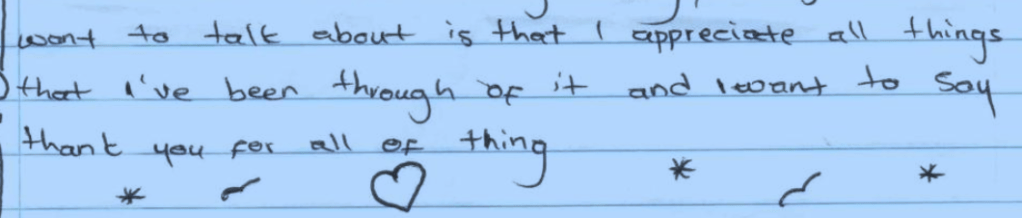 want to talk about is that I appreciate all things
that I've been through of it and I want to say
thank you for all of thing